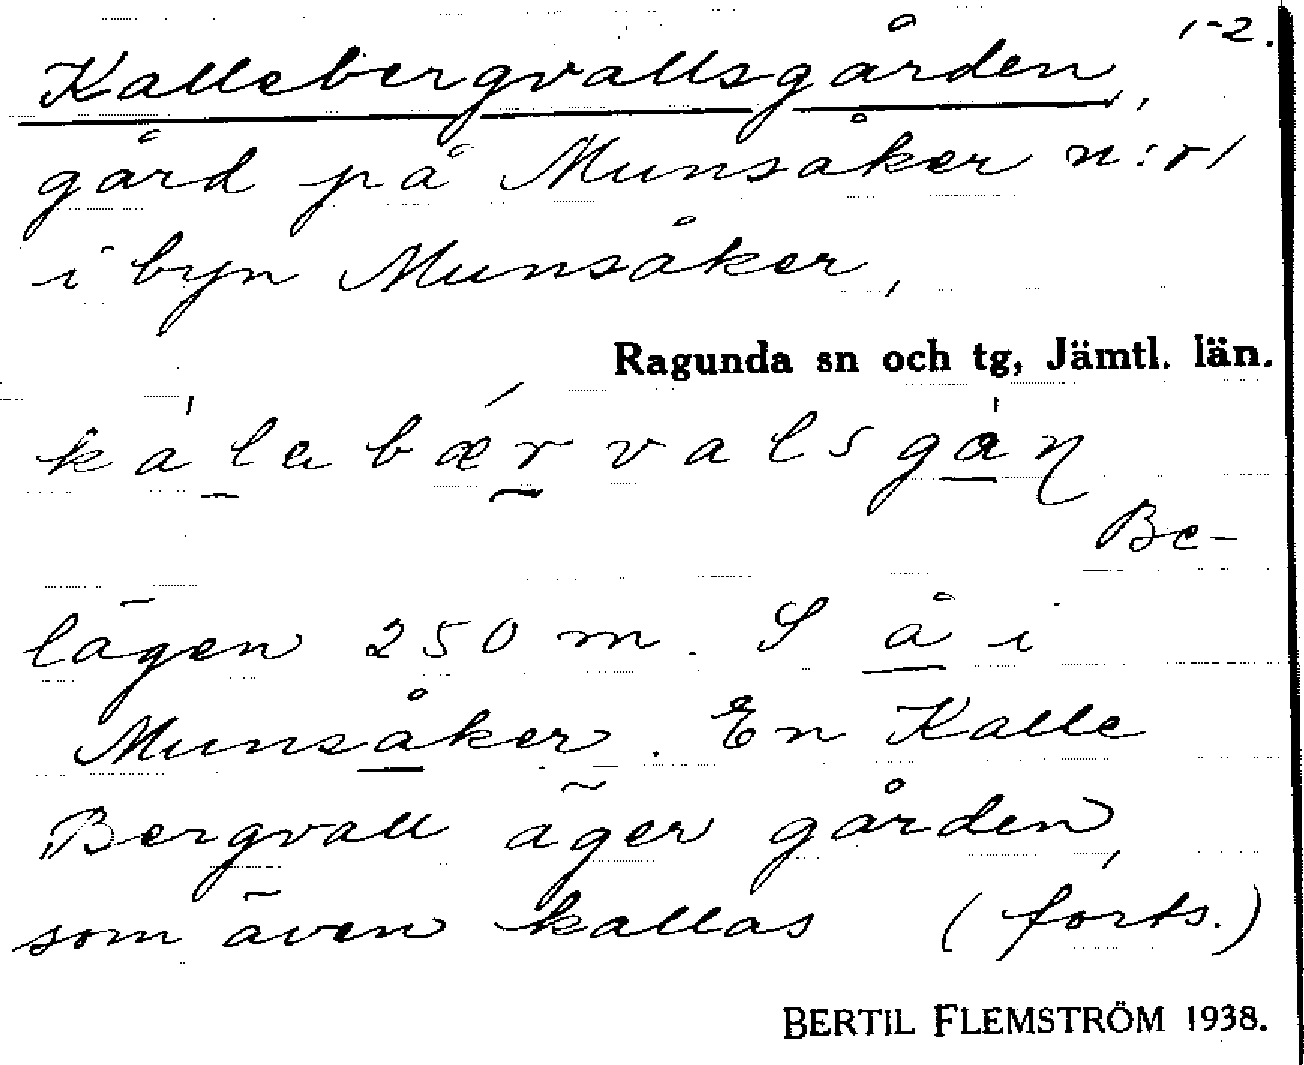 1-2.
Kallebergvallsgården,
gård på Munsåker n:r 1
i byn Munsåker,
Ragunda sn och tg, Jämtl. län.
Be-
lägen 250 m. S å i
Munsåker. En Kalle
Bergvall äger gården,
som även kallas (forts.)
BERTIL FLEMSTRÖM 1938.